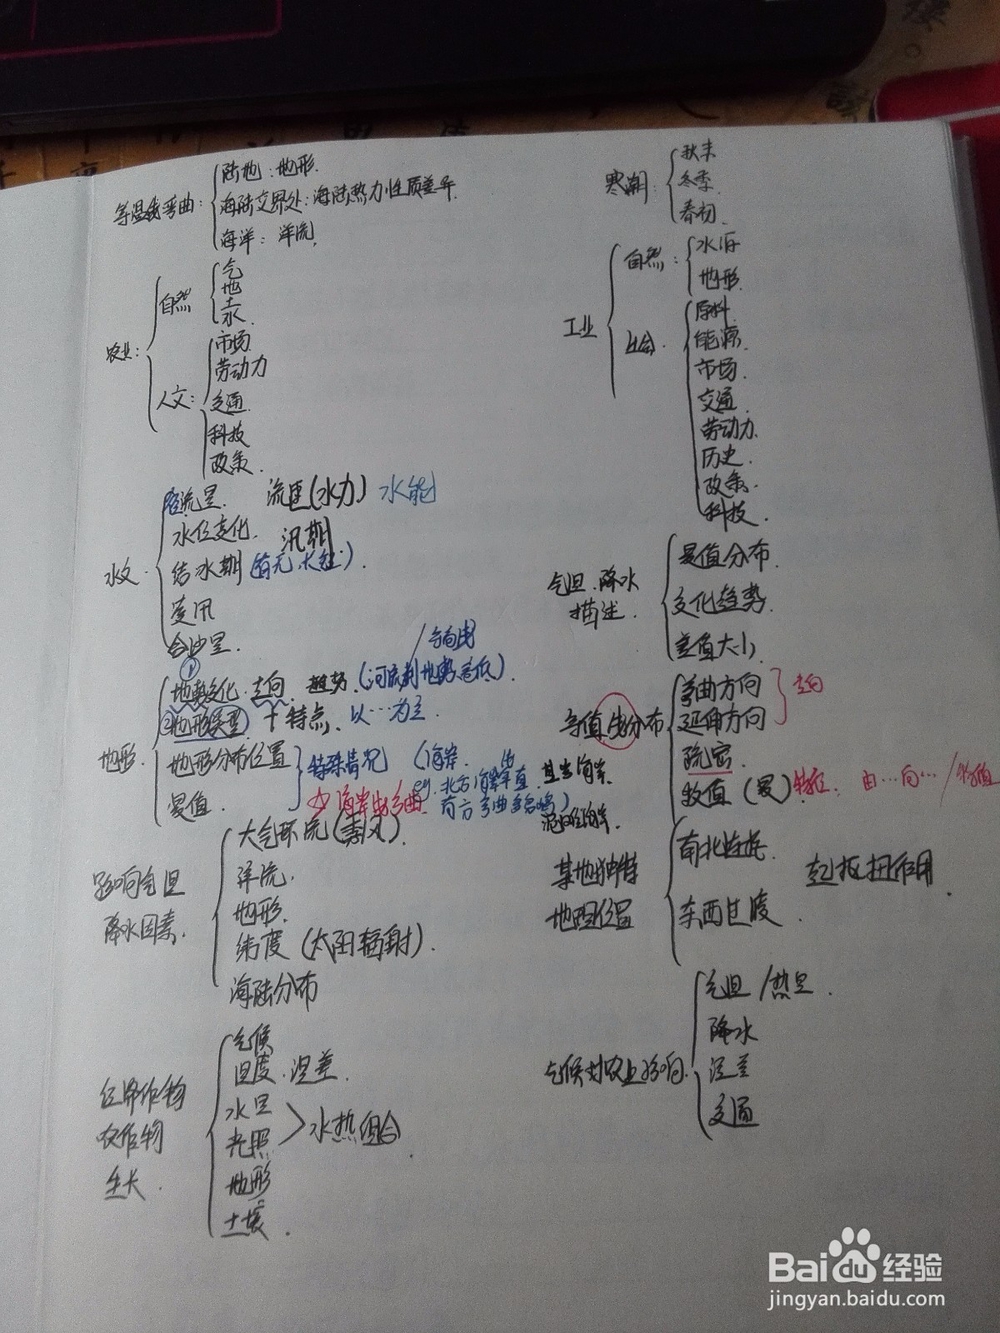 等温线弯曲：
陆地：地形.
海陆交界处：海陆热力性质差异.
海洋：洋流.
农业：
自然
气
地
土
水.
人文：
市场.
劳动力
交通.
科技
政策.
水文.
径流量. 流速(水力) 水能
水位变化. 汛期.
结冰期(有无.长短).
凌汛
含沙量.
地形.
①
地势变化.走向. 趋势.(河流判地势高低)
②地形类型 + 特点. 以…为主
地形分布位置
最值.
特殊情况
海岸线弯曲.
影响气温
降水因素.
大气环流(季风).
洋流.
地形.
纬度(太阳辐射).
海陆分布
经济作物
农作物
生长.
气候
温度.温差.
水量
光照
水热组合
地形
土壤.
寒潮：
秋末
冬季.
春初.
工业
自然：
水源
地形.
社会.
原料.
能源.
市场.
交通.
劳动力.
历史.
政策.
科技.
气温.降水
描述.
最值分布.
变化趋势.
差值大小.
等值线分布
弯曲方向
延伸方向
走向
疏密.
数值(最) 特征. 由…向…/数值
某地独特
地理位置
南北
东西过渡
起 作用.
气候对农业影响.
气温/热量.
降水
温差
交通
Baidu经验
jingyan.baidu.com